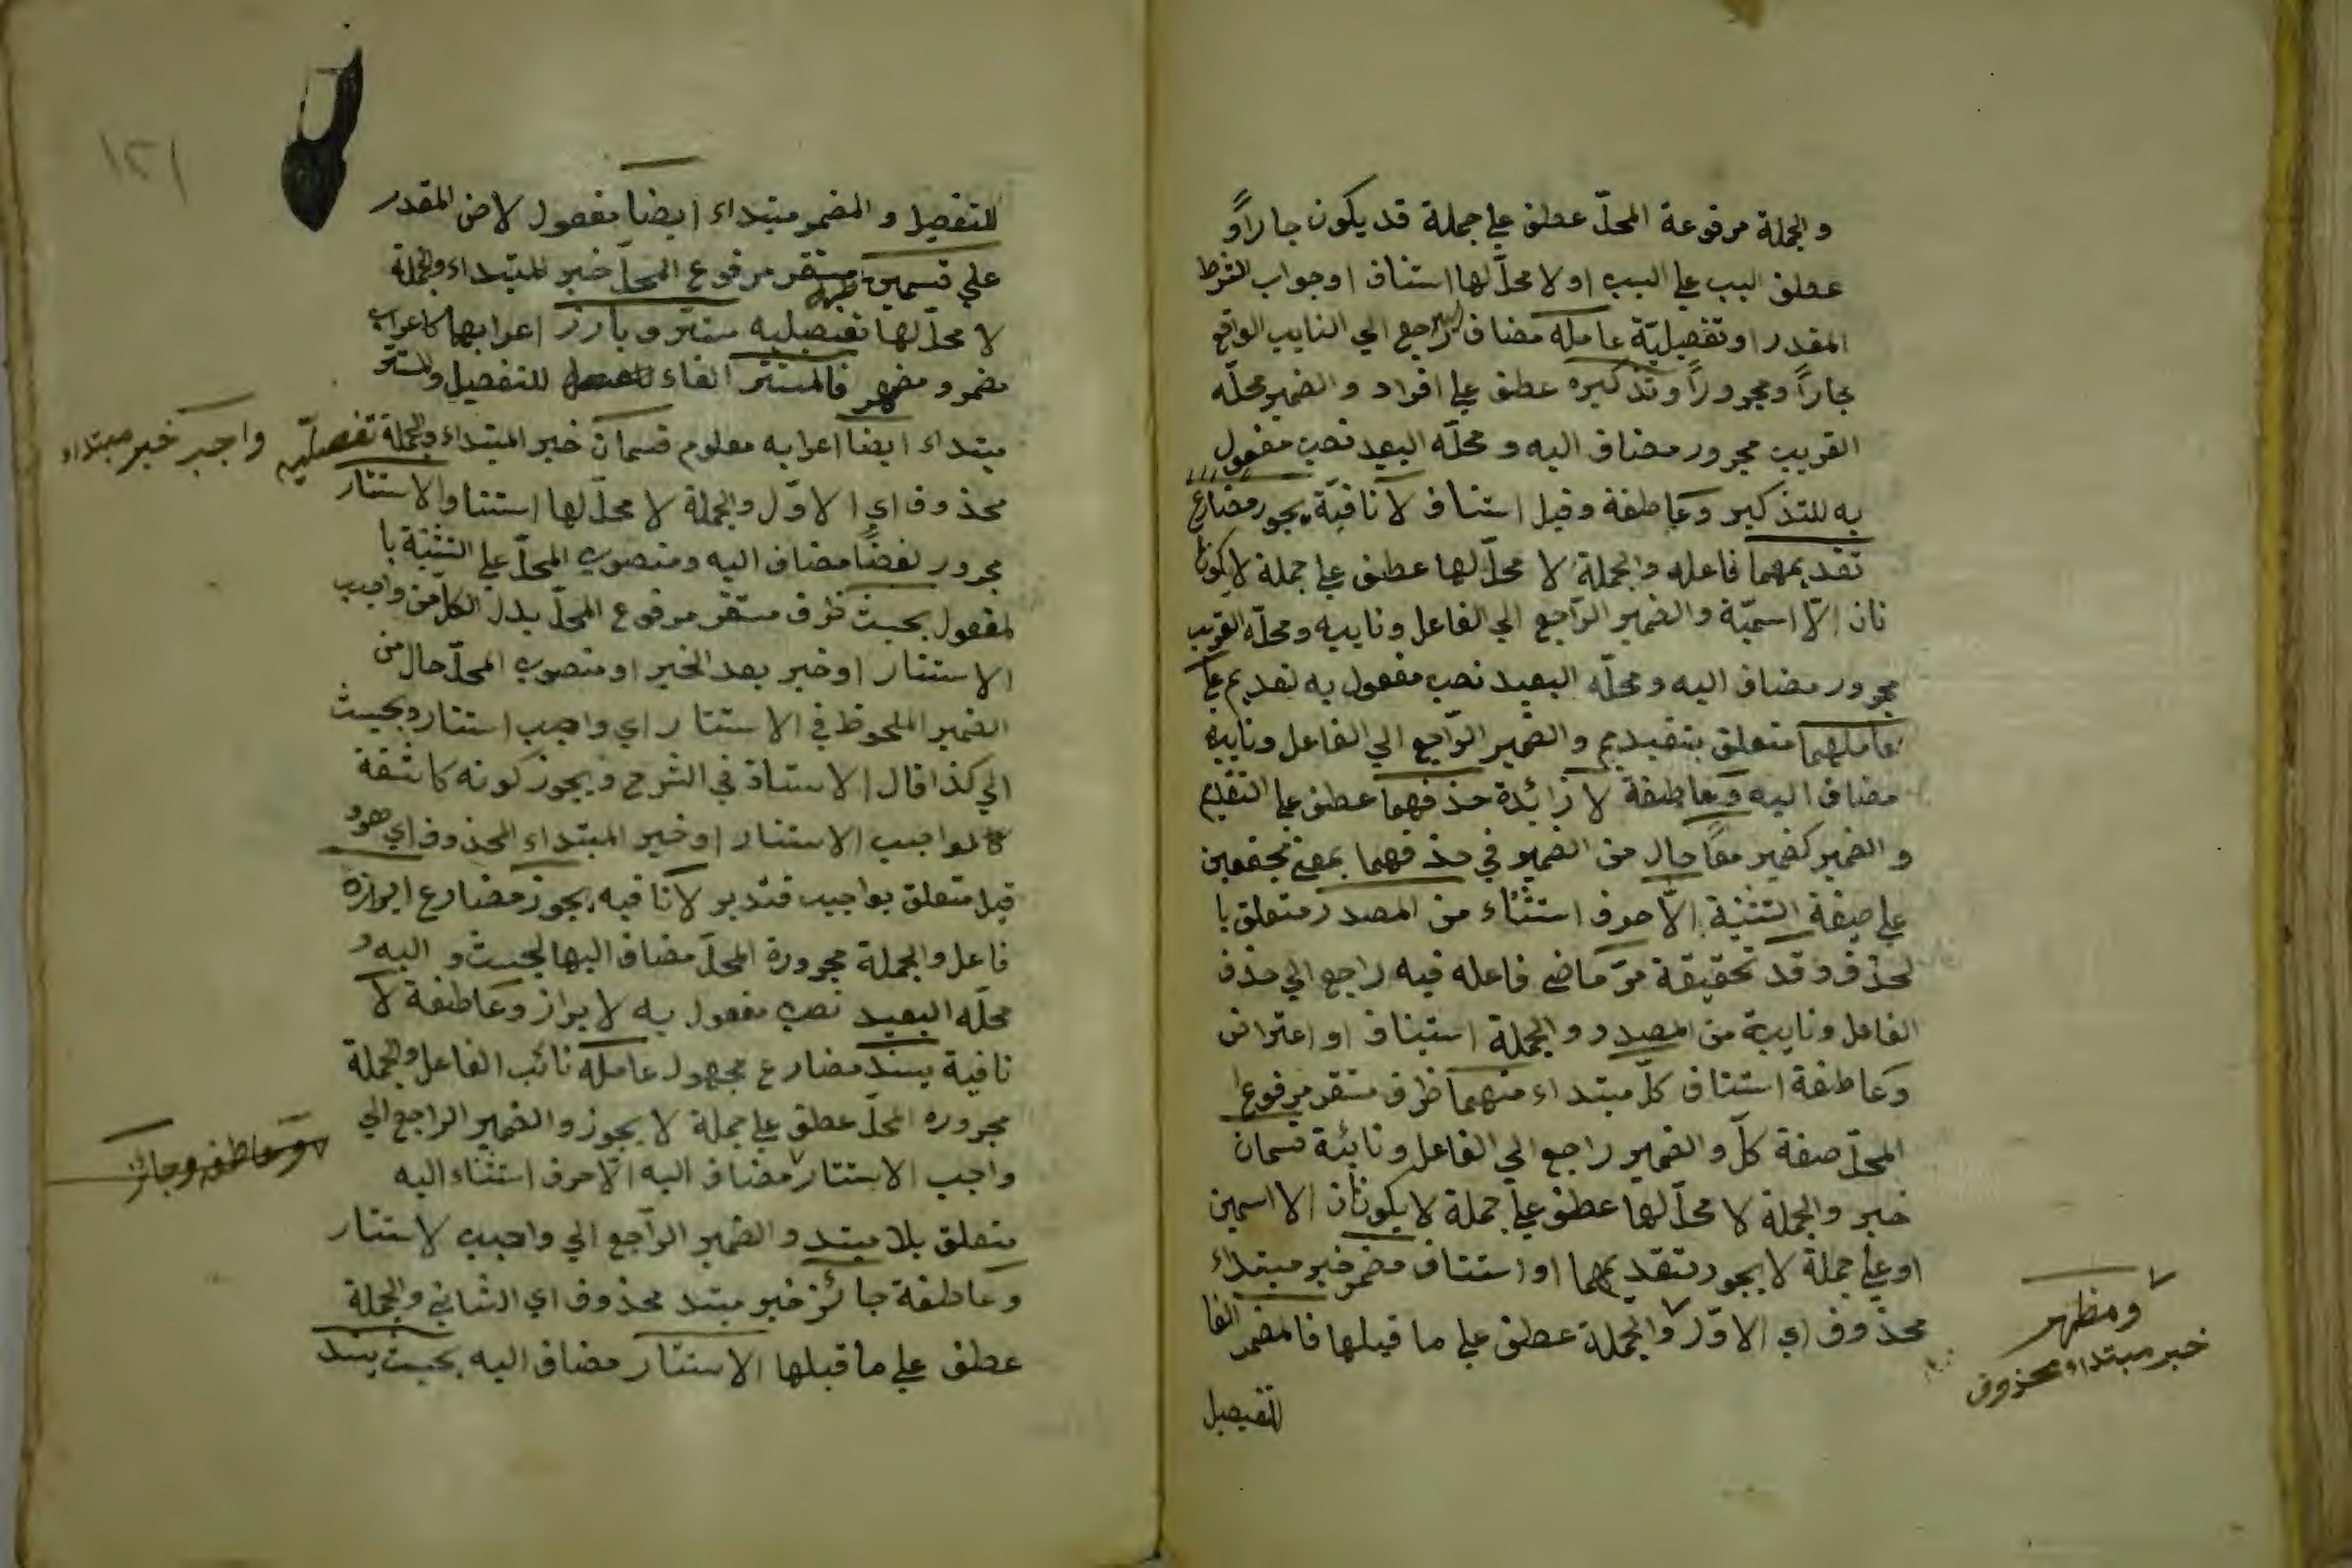 والجملة مرفوعة المحلّ عطف علي جملة قد يكون جاراً و
عطف السبب علي السبب او لا محلّ لها استناف او جواب الشرط
المقدر او تفصيليّة عامله مضاف اليه راجع الي النايب الواقع
جاراً ومجروراً وتذكيره عطف علي افراد والضمير محلّه
القريب مجرور مضاف اليه ومحلّه البعيد نصب مفعول
به للتذكير وعاطفة وقيل استناف لا نافيّة يجوز مضارع
تقديمهما فاعله والجملة لا محلّ لها عطف علي جملة لا يكو
نان الّا اسميّة والضمير الرّاجع الي الفاعل ونايبه ومحلّه القريب
مجرور مضاف اليه ومحلّه البعيد نصب مفعول به تقديم علي
عاملهما متعلق بتقديم والضمير الرّاجع الي الفاعل ونايبه
مضاف اليه وعاطفة لا زائدة حذفهما عطف علي التقديم
والضمير كضمير معاً حال من الضمير في حذفهما بمعني مجتمعين
علي صيغة التثنية الّا حرف استثناء من المصدر متعلق با
لحذف وقد تحقيقة مرّ ماضي فاعله فيه راجع الي حذف
الفاعل ونايبه من المصدر والجملة استيناف او اعتراض
وعاطفة استناف كلّ مبتداء منهما ظرف مستقر مرفوع
المحلّ صفة كلّ والضمير راجع الي الفاعل ونائبه قسمان
خبر والجملة لا محلّ لها عطف علي جملة لا يكونان الا اسمين
او علي جملة لا يجوز تقديمهما او استناف مضمر خبر مبتداء
محذوف اي الاوّل والجملة عطف علي ما قبلها فالمضمر الفا
ومظهر
خبر مبتداء محذوف
للتفصيل
١٢١
للتفصيل والمضمر مبتداء ايضاً مفعول لاض المقدر
علي قسمين مستقر مرفوع المحلّ خبر للمبتداء والجملة
لا محلّ لها تفصيليه مستتر وبارز اعرابهما كاعراب
مضمر ومضهر فالمستتر الفاء للتفصيل والمستتر
مبتداء ايضاً اعرابه معلوم قسمان خبر المبتداء والجملة تفصيليّه واجب خبر مبتداء
محذوف اي الاوّل والجملة لا محلّ لها استنا والاستتار
مجرور لفضاً مضاف اليه ومنصوب المحلّ علي التشبيه با
لمفعول بحيث ظرف مستقر مرفوع المحلّ بدل الكلّ من واجب
الاستتار او خبر بعد الخبر او منصوب المحلّ حال من
الضمير الملحوظ في الاستتار اي واجب استتاره بحيث
الي كذا قال الاستاذ في الشرح ويجوز كونه كاشفة
لواجب الاستتار او خبر المبتداء المحذوف اي هو و
قيل متعلق بواجب فتدبر لا نافيه يجوز مضارع ابرازه
فاعل والجملة مجرورة المحلّ مضاف اليها لحيث و اليه و
محلّه البعيد نصب مفعول به لابراز وعاطفة لا
نافية يسند مضارع مجهول عامله نائب الفاعل والجملة
مجروره المحلّ عطف علي جملة لا يجوز والضمير الراجع الي
واجب الاستتار مضاف اليه الّا حرف استثناء اليه
وعاطفه وجائز
متعلق بلا مبتد والضمير الرّاجع الي واجب لاستتار
وعاطفة جائز خبر مبتد محذوف اي الثاني والجملة
عطف علي ما قبلها الاستتار مضاف اليه بحيث يسند